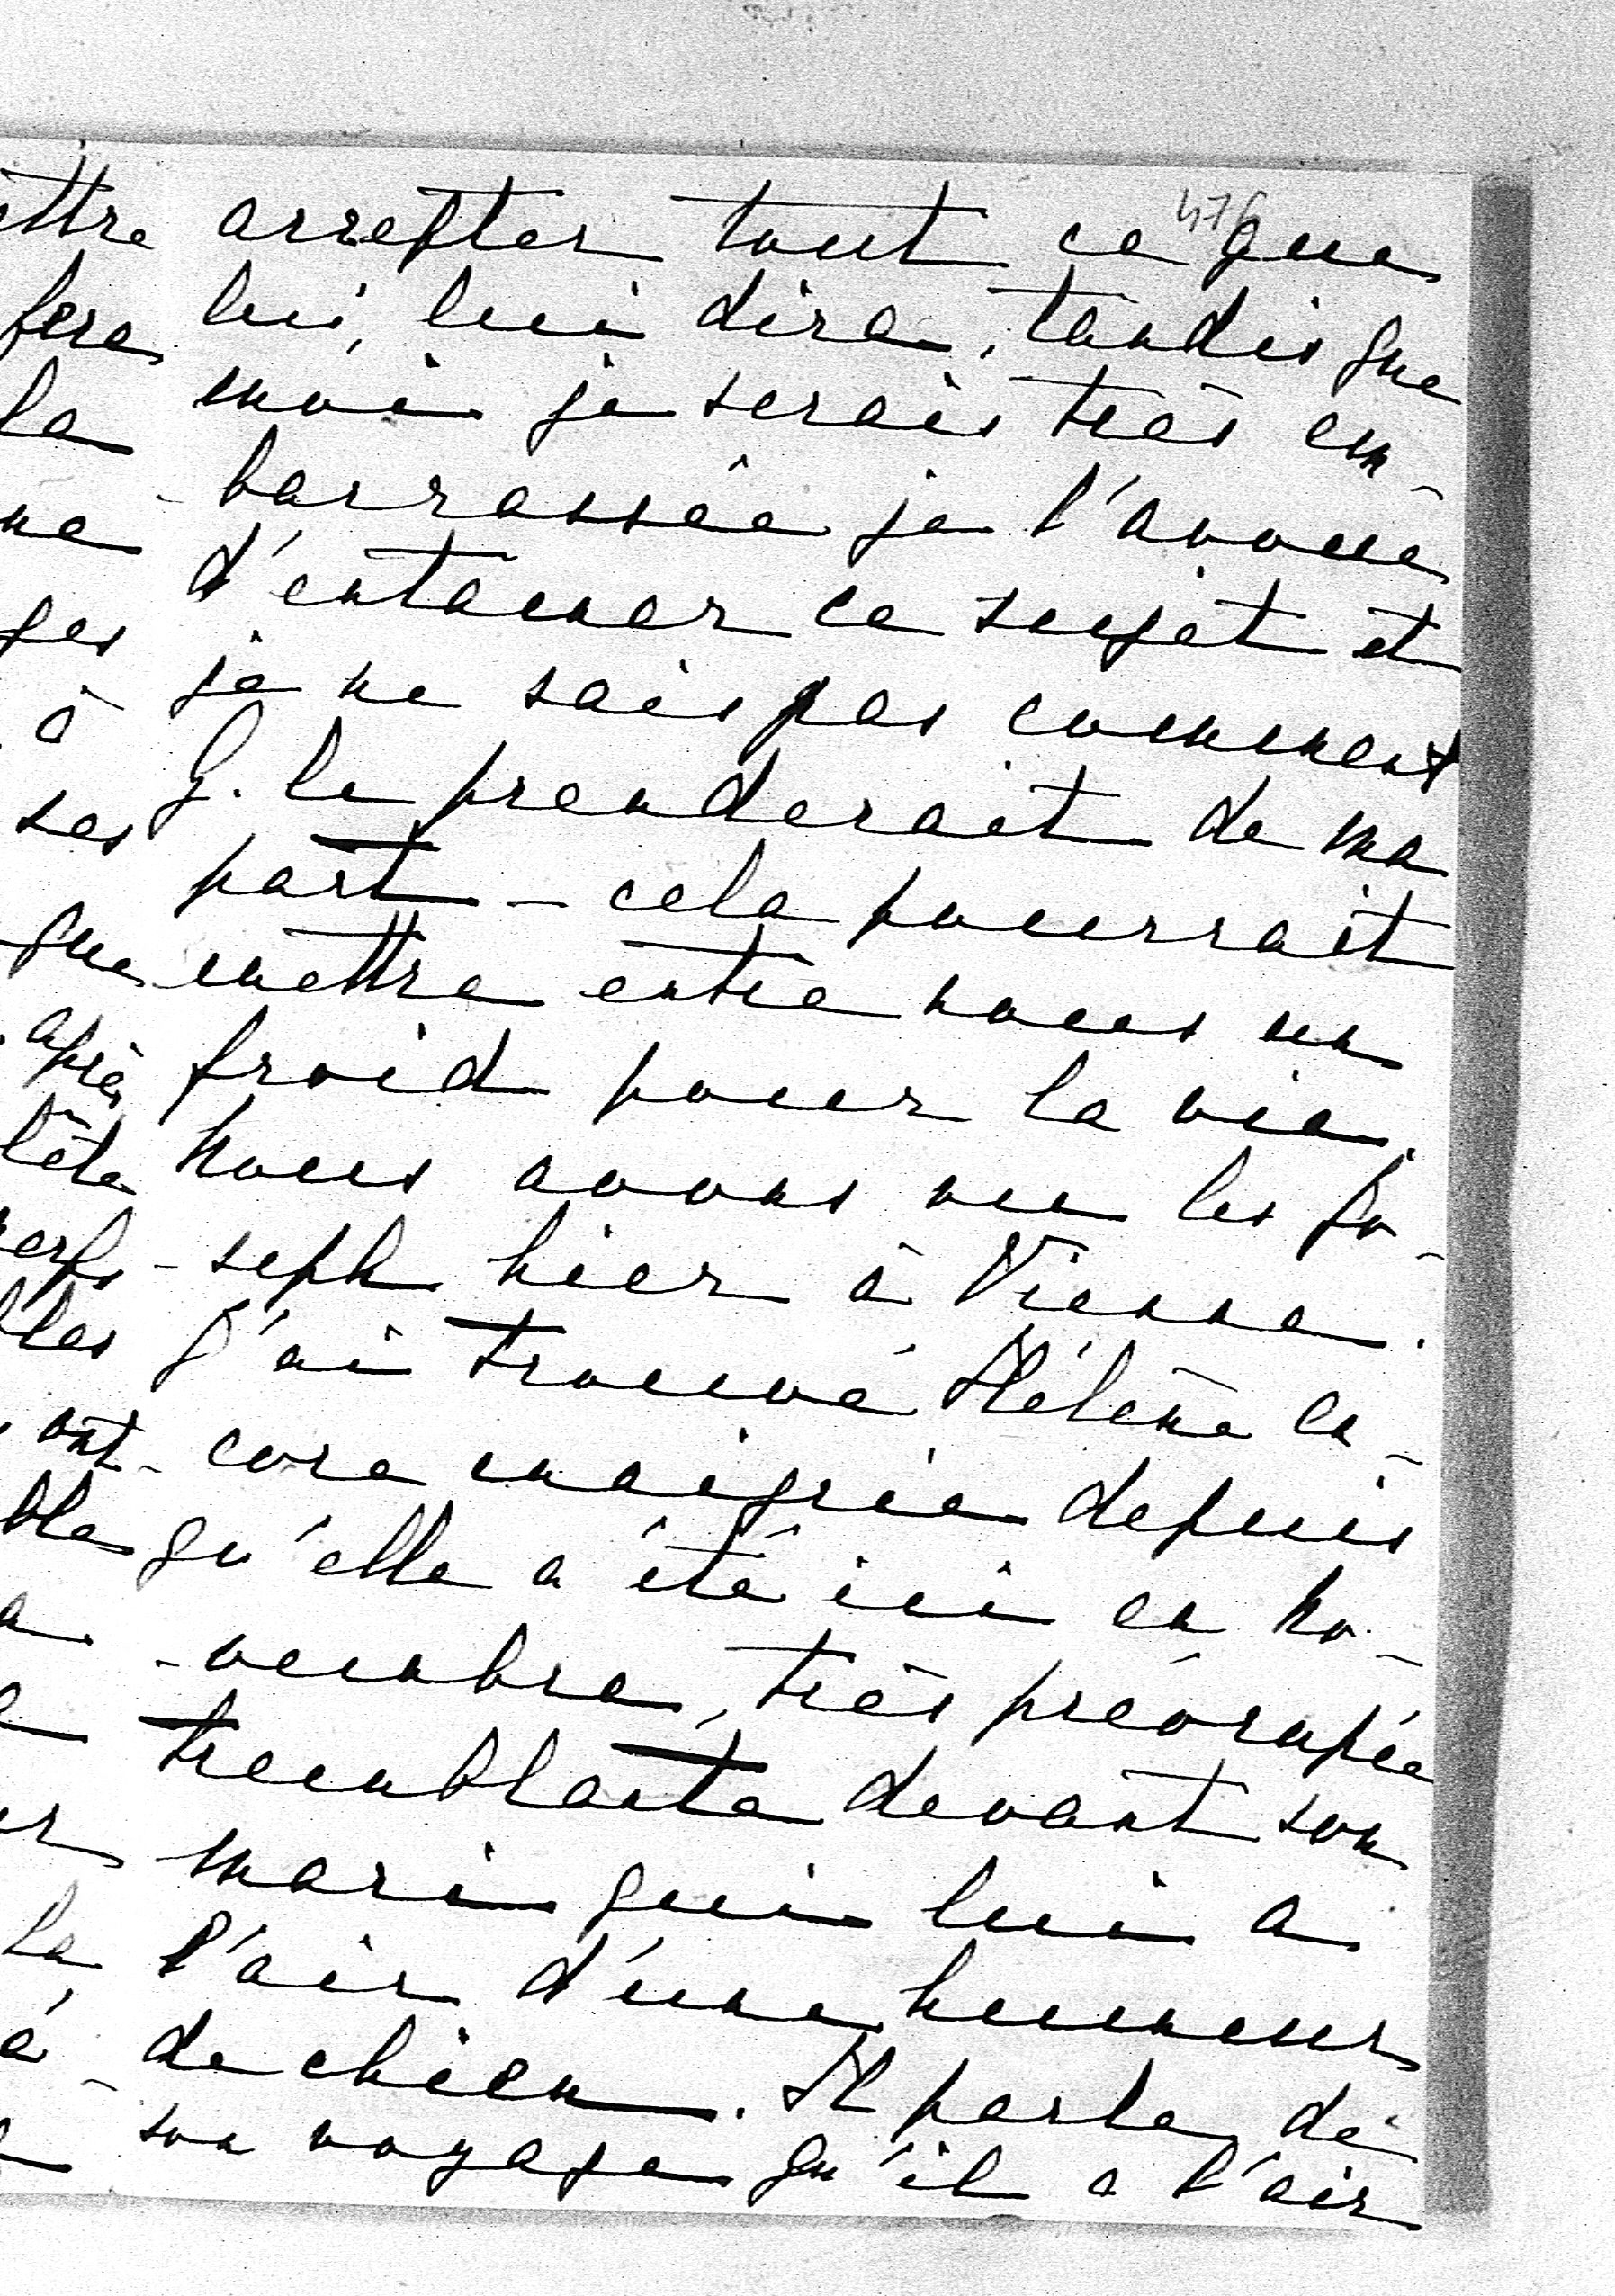 476
ttre arrepter tout ce que
fera lui, lui dira, tandis que
la moi je serais très em-
ne -barrassée je l'avoue
ges d'entamer ce sujet et
à je ne sais pas comment
ses G. le prenderait de ma
part - cela pourrait
que mettre entre nous un
après froid pour la vie.
tête Nous avons vu les Jo-
erfs -seph hier à Vienne.
lles J'ai trouvé Hélène en-
ont - core maigrie depuis
ble qu'elle a été ici en No-
a. -vembre, très préocupée
tremblante devant son
mari qui lui a
la, l'air d'une humeur
à - de chien. Il parle de
son voyage qu'il a l'air